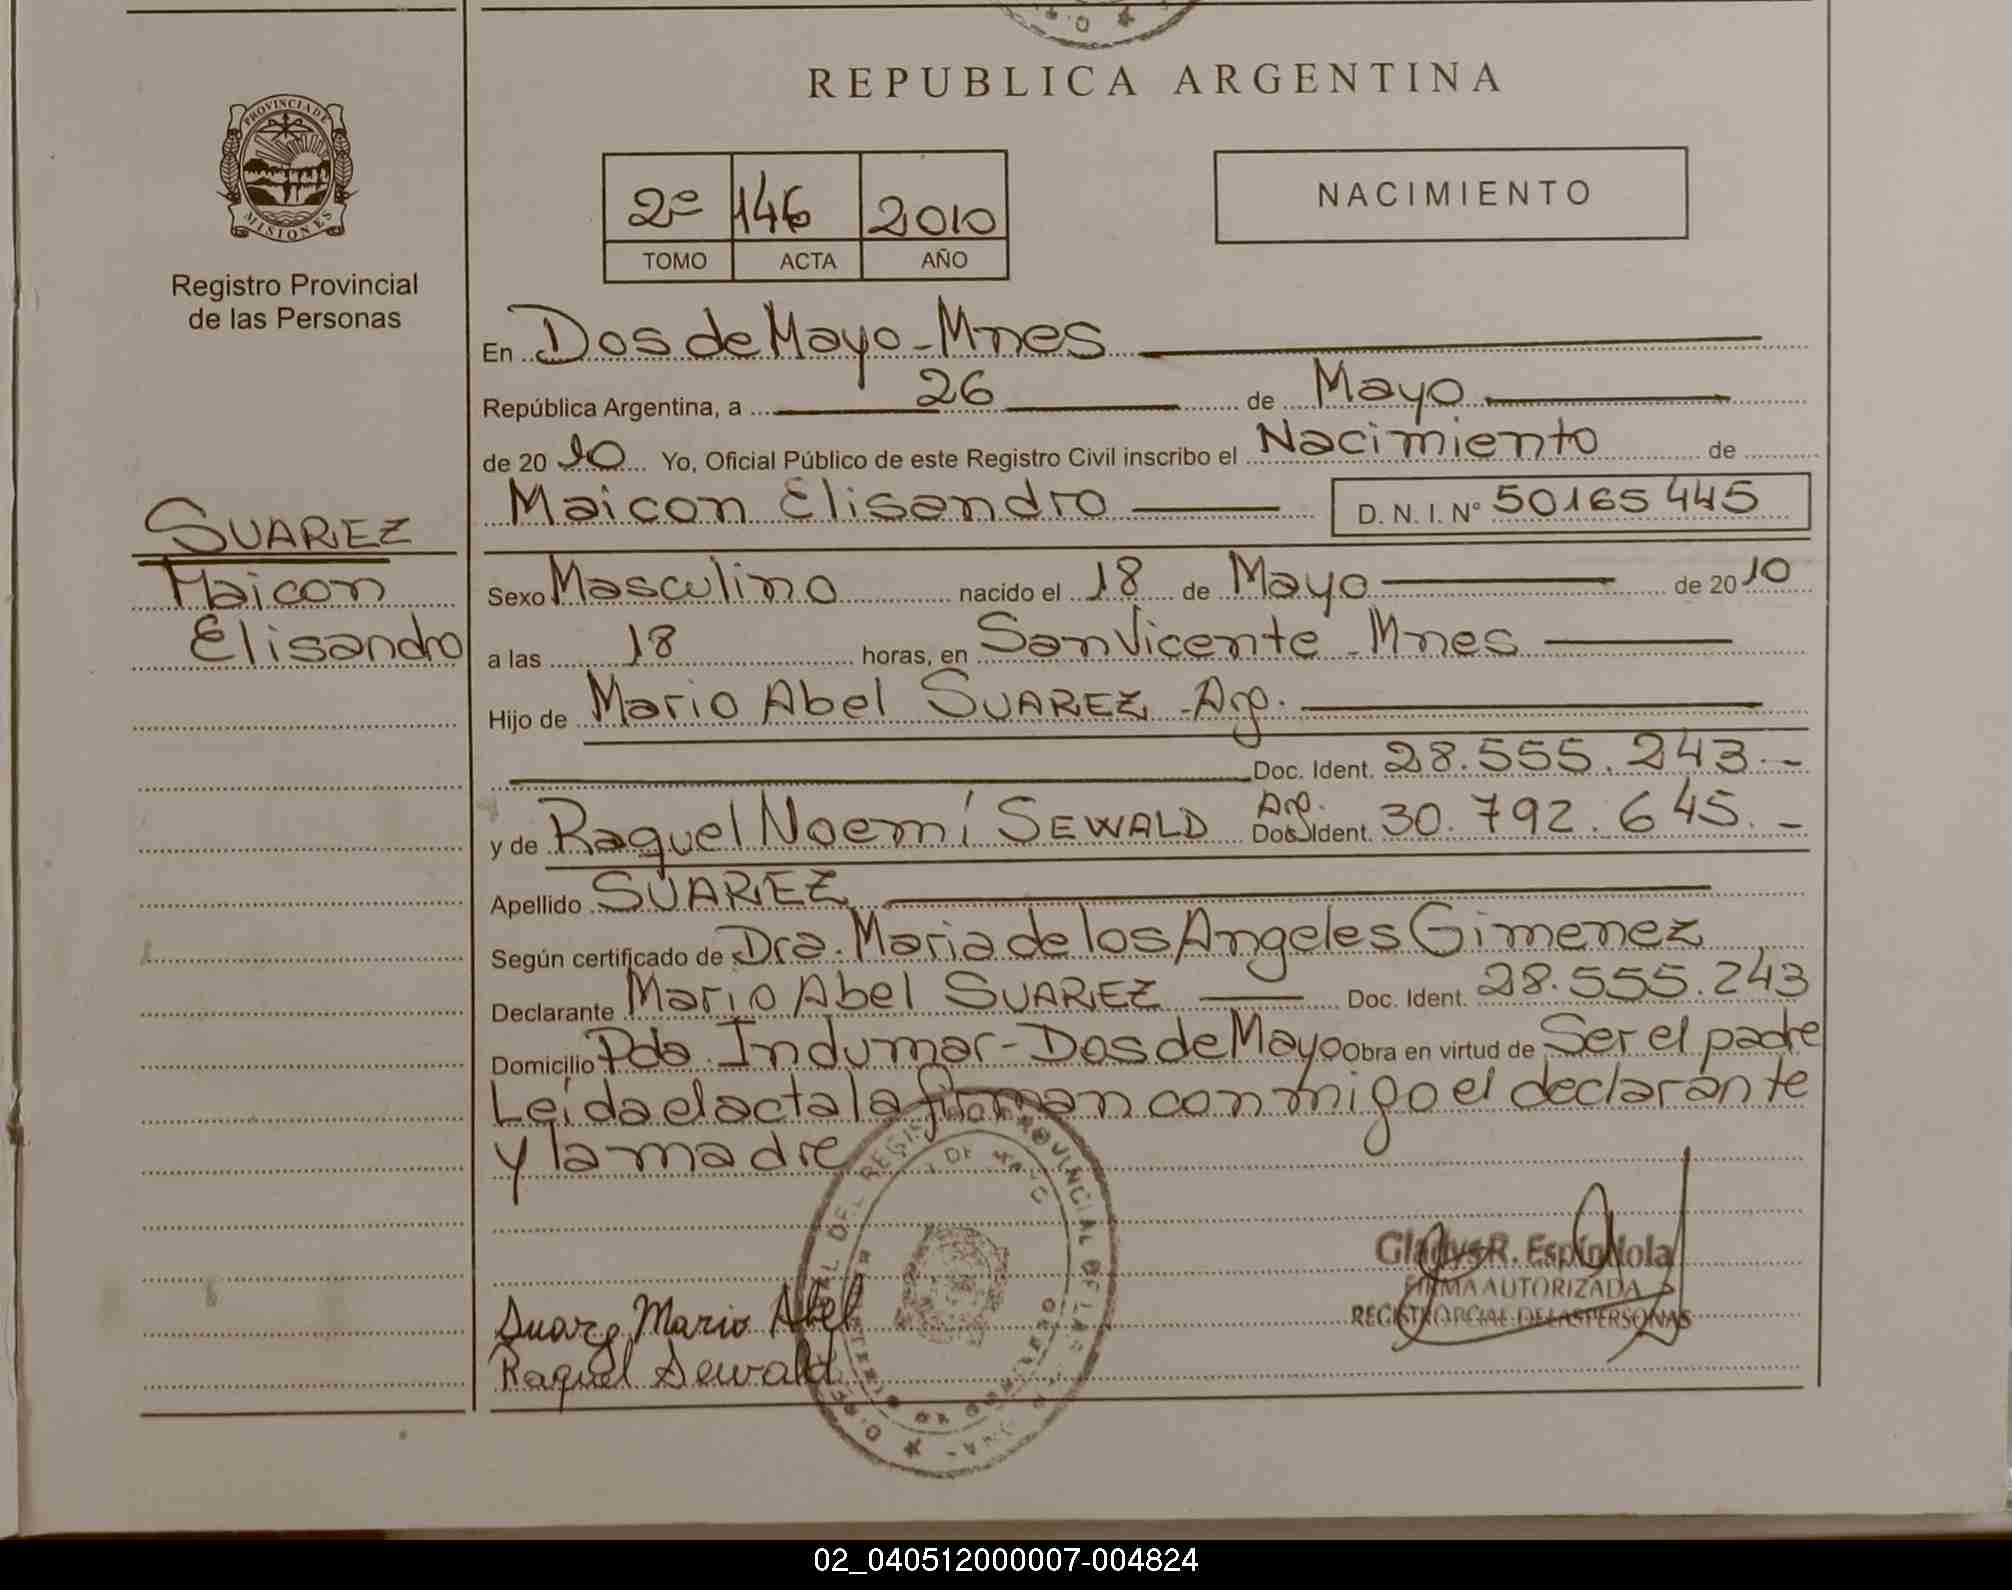 REPUBLICA ARGENTINA
PROVINCIA DE
MISIONES
Registro Provincial
de las Personas
2º 146 2010
TOMO ACTA AÑO
NACIMIENTO
En Dos de Mayo - Mnes
República Argentina, a 26 de Mayo
de 20 10 Yo, Oficial Público de este Registro Civil inscribo el Nacimiento de
Maicon Elisandro D. N. I. Nº 50165445
SUAREZ
Maicon
Elisandro
Sexo Masculino nacido el 18 de Mayo de 20 10
a las 18 horas, en San Vicente - Mnes
Hijo de Mario Abel SUAREZ - Arg.
Doc. Ident. 28.555.243.-
y de Raquel Noemí SEWALD Arg. Doc. Ident. 30.792.645.-
Apellido SUAREZ
Según certificado de Dra. Maria de los Angeles Gimenez
Declarante Mario Abel SUAREZ Doc. Ident. 28.555.243
Domicilio Pda. Indumar - Dos de Mayo Obra en virtud de Ser el padre
Leída el acta la firman conmigo el declarante
y la madre
Gladys R. Espíndola
FIRMA AUTORIZADA
REGISTRO PCIAL. DE LAS PERSONAS
Suarez Mario Abel
Raquel Sewald
02_040512000007-004824